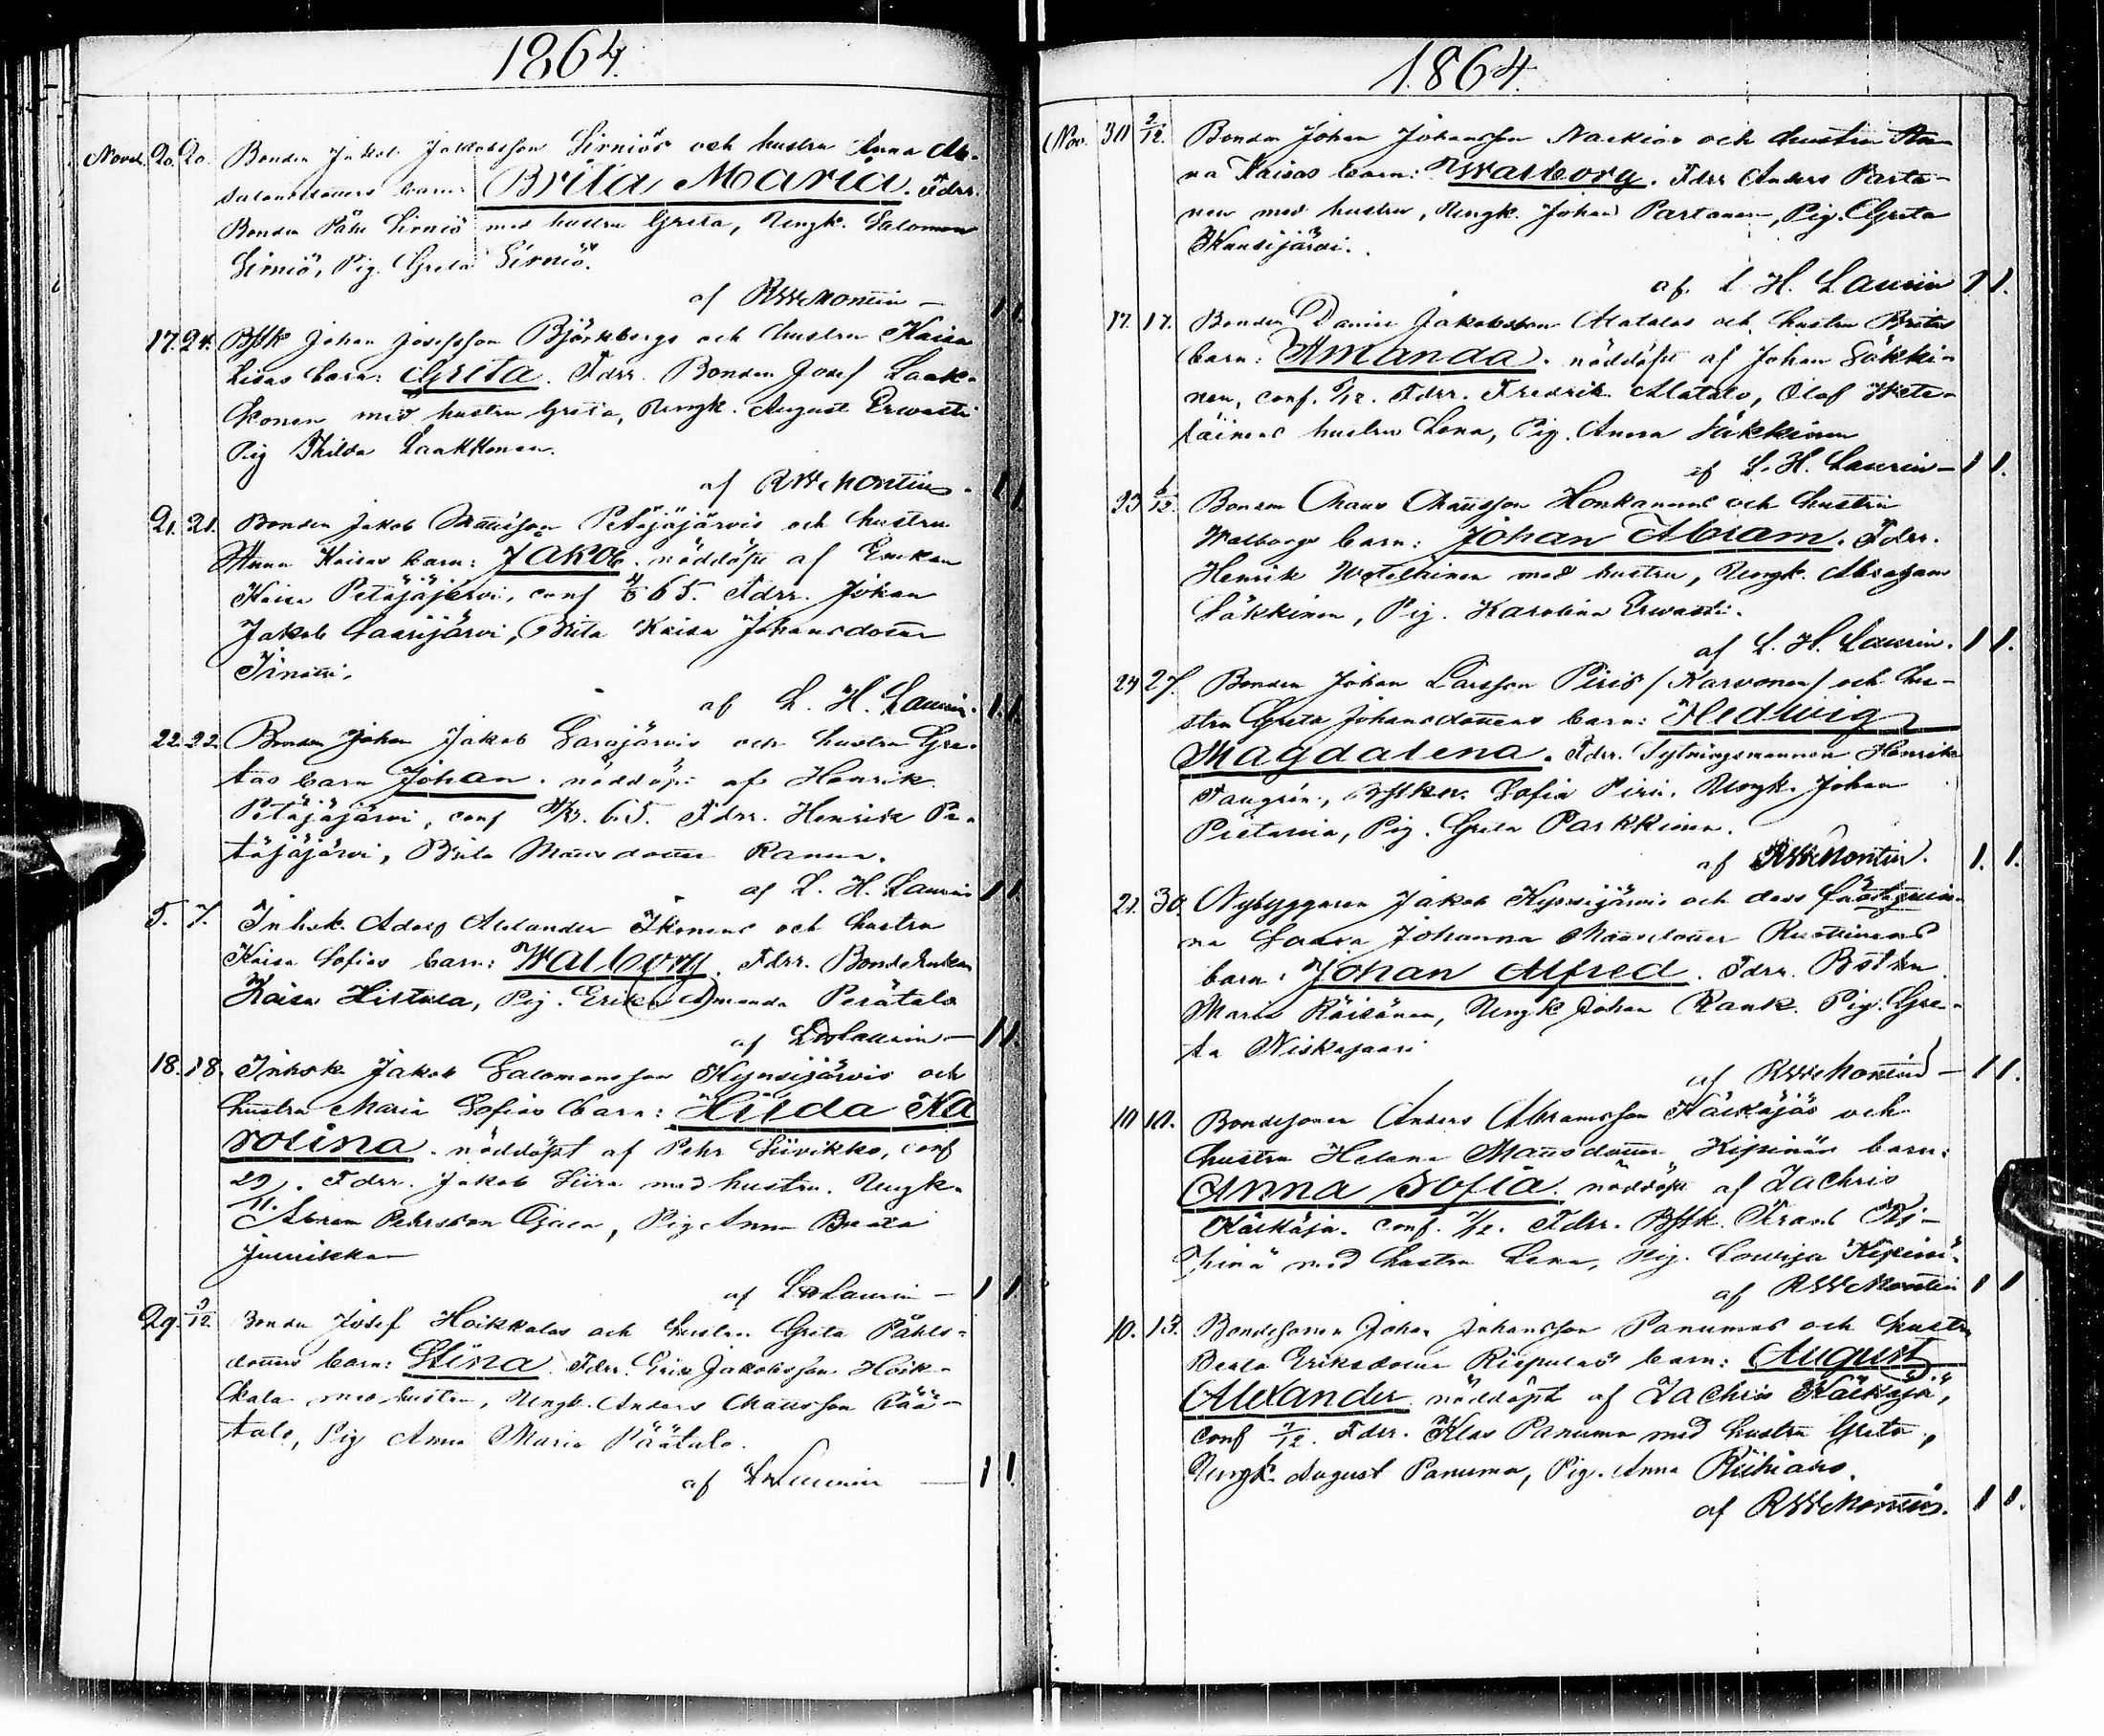 1864.
Novbr. 20. 20. Bonden Jakob Jakobsson Sirniös och hustru Anna Ab-
salonsdotters barn: Brita Maria. Fdrr.
Bonden Påhl Sirniö med hustru Greta, Ungk. Salomon
Sirniö, Pig. Greta Sirniö.
af RWMontin — 1 1.
17. 24. Bffk Johan Josefsson Björkbergs och hustru Kaisa
Lisas barn: Greta. Fdrr. Bonden Josef Laak-
konen med hustru Greta, Ungk. August Erwasti
Pig Hilda Laakkonen.
af RWMontin. 1 1
21. 21. Bonden Jakob Mattsson Petäjäjärvis och hustru
Anna Kaisas barn: Jakob. nöddöpt af Enkan
Kaisa Petäjäjärvi, conf 65. Fdrr. Johan
Jakob Saarijärvi, Brita Kaisa Johansdotter
af L. H. Laurin. 1. 1.
22. 22. Bonden Johan Jakob Sarajärvis och hustru Gre-
tas barn Johan. nöddöpt af Henrik
Petäjäjärvi, conf 65. Fdrr. Henrik Pe-
täjäjärvi, Brita Mattsdotter
af L. H. Laurin 1 1
5. 7. Inhsk. Adolf Alexander Ikonens och hustru
Kaisa Sofias barn: Walborg. Fdrr. Bondeenkan
Kaisa Hiltula, Pig. Erika Amanda Perätalo
af LHLaurin — 1 1.
18. 18. Inhsk Jakob Salomonsson Kynsijärvis och
hustru Maria Sofias barn: Hilda Ka
rolina. nöddöpt af Pehr Siivikko, conf
29/11. Fdrr. Jakob Siira med hustru. Ungk.
Abram Pehrsson Ojala, Pig Anna Beata
af LHLaurin — 1 1.
29. 3/12. Bonden Josef Hoikkalas och hustru Greta Påhls-
dotters barn: Stina. Fdrr. Erik Jakobsson Hoik-
kala med hustru, Ungk. Anders Mattsson Pää-
talo, Pig Anna Maria Päätalo.
af LHLaurin — 1 1.
1864.
Nov. 30 2/12. Bonden Johan Johansson Naekiös och hustru An-
na Kaisas barn: Walborg. Fdrr Anders Parta-
nen med hustru, Ungk. Johan Partanen, Pig. Greta
af L. H. Laurin 1 1.
17. 17. Bonden Daniel Jakobsson Alatalos och hustru Britas
barn: Amanda. nöddöpt af Johan Säkki-
nen, conf. /12. Fdrr. Fredrik Alatalo, Olof Wete-
läinens hustru Lena, Pig. Anna Säkkinen
af L. H. Laurin — 1 1.
23 /12 Bonden Mats Mattsson Honkanens och hustru
Walborgs barn: Johan Abram. Fdrr.
Henrik Weteläinen med hustru, Ungk. Abraham
Säkkinen, Pig. Karolina Erwasti.
af L. H. Laurin. 1 1.
24 27. Bonden Johan Larsson Piris / Karvonen / och hu-
stru Greta Johansdotters barn: Hedwig
Magdalena. Fdrr. Sytningsmannen Henrik
Sofia Piri. Ungk. Johan
Pig. Greta Parkkinen.
af RWMontin. 1. 1.
21. 30. Nybyggaren Jakob Kynsijärvis och dess
Johanna Mattsdotter
barn: Johan Alfred. Fdrr.
Maria Räisänen, Ungk Johan Pig. Gre-
ta Niskasaari
af RWMontin — 1 1.
10 10. Bondesonen Anders Abramsson Käikäjäs och
hustru Helena Mattsdotter Kipinäs barn:
Anna Sofia. nöddöpt af Zachris
Käikäjä. conf. /12. Fdrr. Bffk. Frans Ki-
pinä med hustru Lena, Pig. Lovisa Kipinä.
af RWMontin 1 1
10. 13. Bondesonen Johan Johansson Panumas och hustru
Beata Eriksdotter Riepulas barn: August
Alexander nöddöpt af Zachris Käikäjä,
conf /12. Fdrr. Klas Panuma med hustru Greta,
Ungk. August Panuma, Pig. Anna
af RWMontin. 1 1.